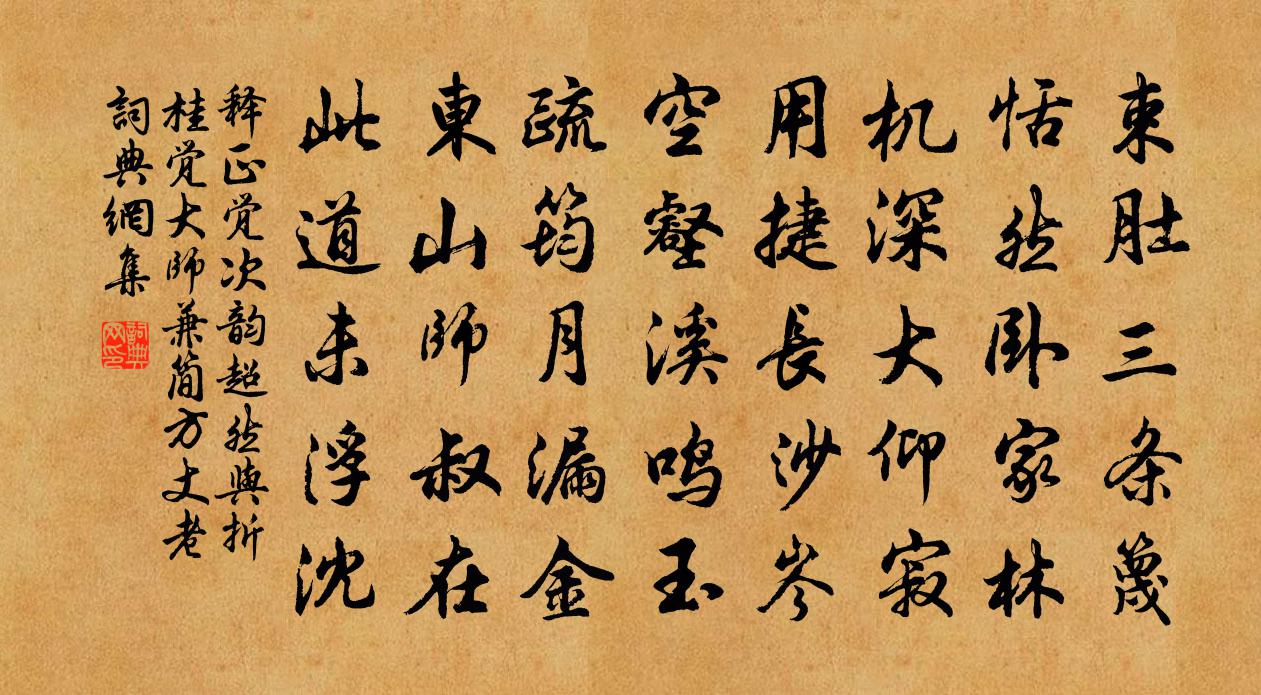 束肚三条篾
恬然卧家林
机深大仰寂
用捷长沙岑
空壑溪鸣玉
疏筠月漏金
東山師叔在
此道未浮沈
释正觉次韵超然與折
桂觉大师兼简方丈老
詞典網集
詞典网印